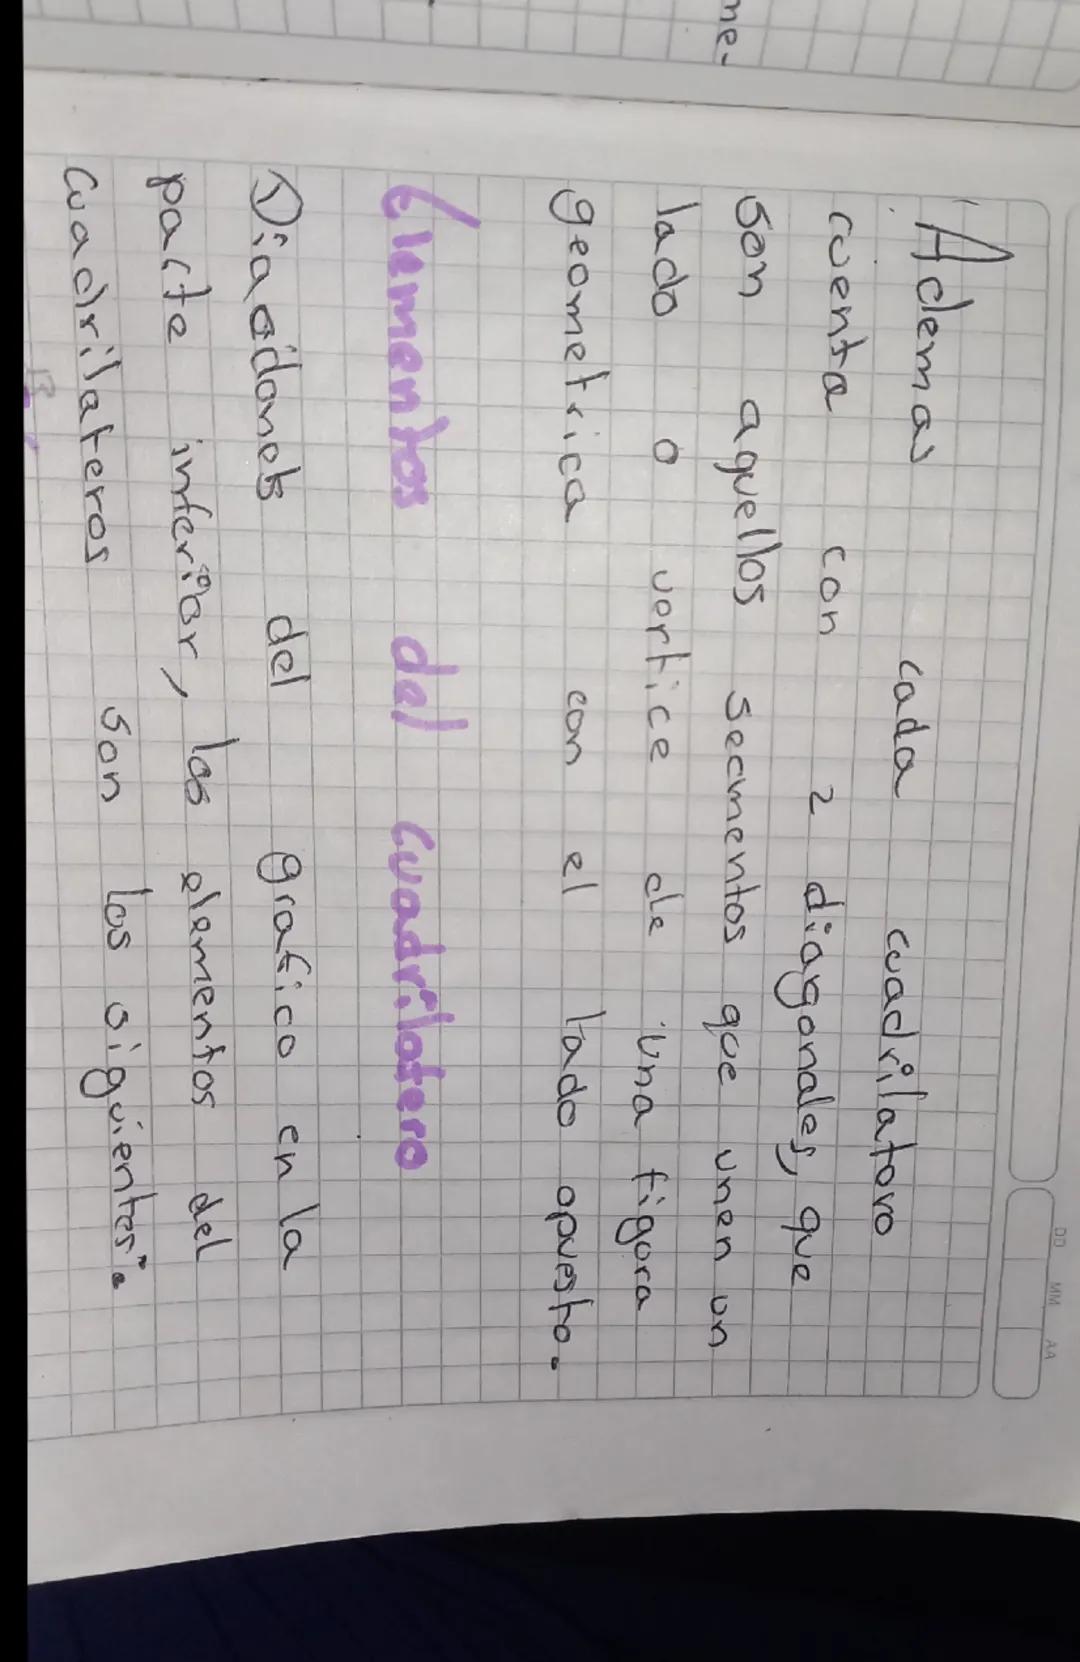 me-
DD MM AA
Ademas cada cuadrilatoro
cuenta con 2 diagonales, que
son aquellos secmentos que unen un
lado o vertice de una figura
geometrica con el lado opuesto.
Elementos del cuadrilatero
del grafico en la
parte inferior, los elementos del
cuadrilateros son los siguientes: